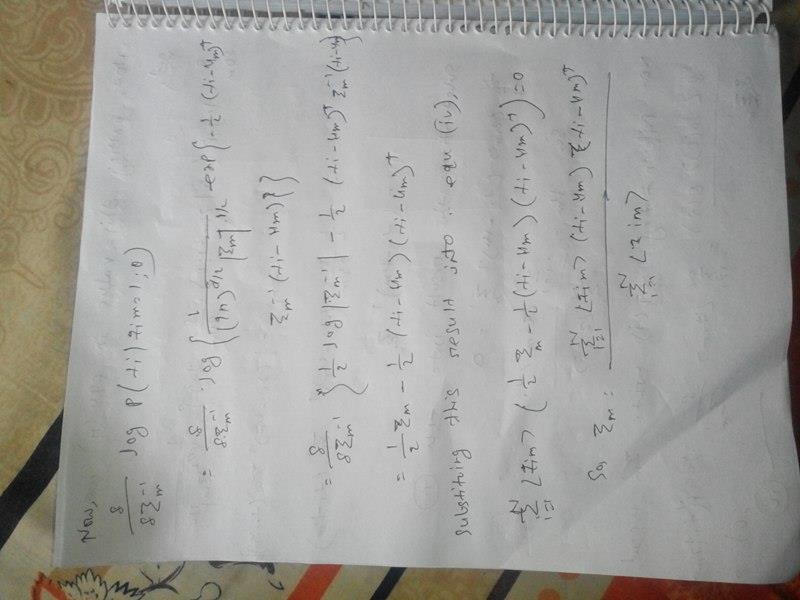 Now,
δ/δΣm⁻¹ log P(ti | zim=1, θ)
= δ/δΣm⁻¹ · log { 1/((2π)^{d/2} |Σm|^{1/2}) exp{ -1/2 (ti-μm)^T
Σm⁻¹ (ti-μm) } }
= δ/δΣm⁻¹ { 1/2 log |Σm⁻¹| - 1/2 (ti-μm)^T Σm⁻¹ (ti-μm) }
= 1/2 Σm - 1/2 (ti-μm) (ti-μm)^T
substituting this result into equ (iv),
Σ_{i=1}^{N} <zim> ( 1/2 Σm - 1/2 (ti-μm) (ti-μm)^T ) = 0
So, Σm = Σ_{i=1}^{N} <zim> (ti-μm) (ti-μm)^T
Σ_{i=1}^{N} <zim>